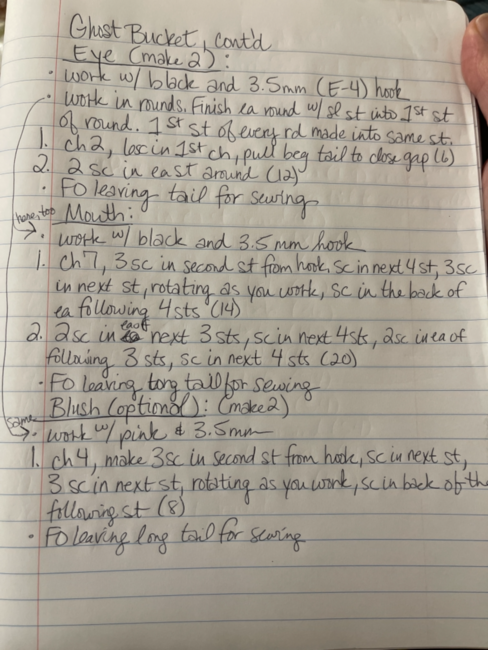 Ghost Bucket, cont'd
Eye (make 2):
· work w/ black and 3.5mm (E-4) hook
· work in rounds. Finish ea round w/ sl st into 1st st
of round. 1st st of every rd made into same st.
1. ch2, 6sc in 1st ch, pull beg tail to close gap (6)
2. 2 sc in east around (12)
· FO leaving tail for sewing
Mouth:
here, too
· work w/ black and 3.5mm hook
1. Ch 7, 3sc in second st from hook, sc in next 4 st, 3sc
in next st, rotating as you work, sc in the back of
ea following 4 sts (14)
2. 2sc in ea of next 3 sts, sc in next 4sts, 2sc in ea of
following 3 sts, sc in next 4 sts (20)
· FO leaving long tail for sewing
Blush (optional): (make 2)
same
· work w/ pink & 3.5mm
1. ch 4, make 3sc in second st from hook, sc in next st,
3 sc in next st, rotating as you work, sc in back of the
following st (8)
· FO leaving long tail for sewing